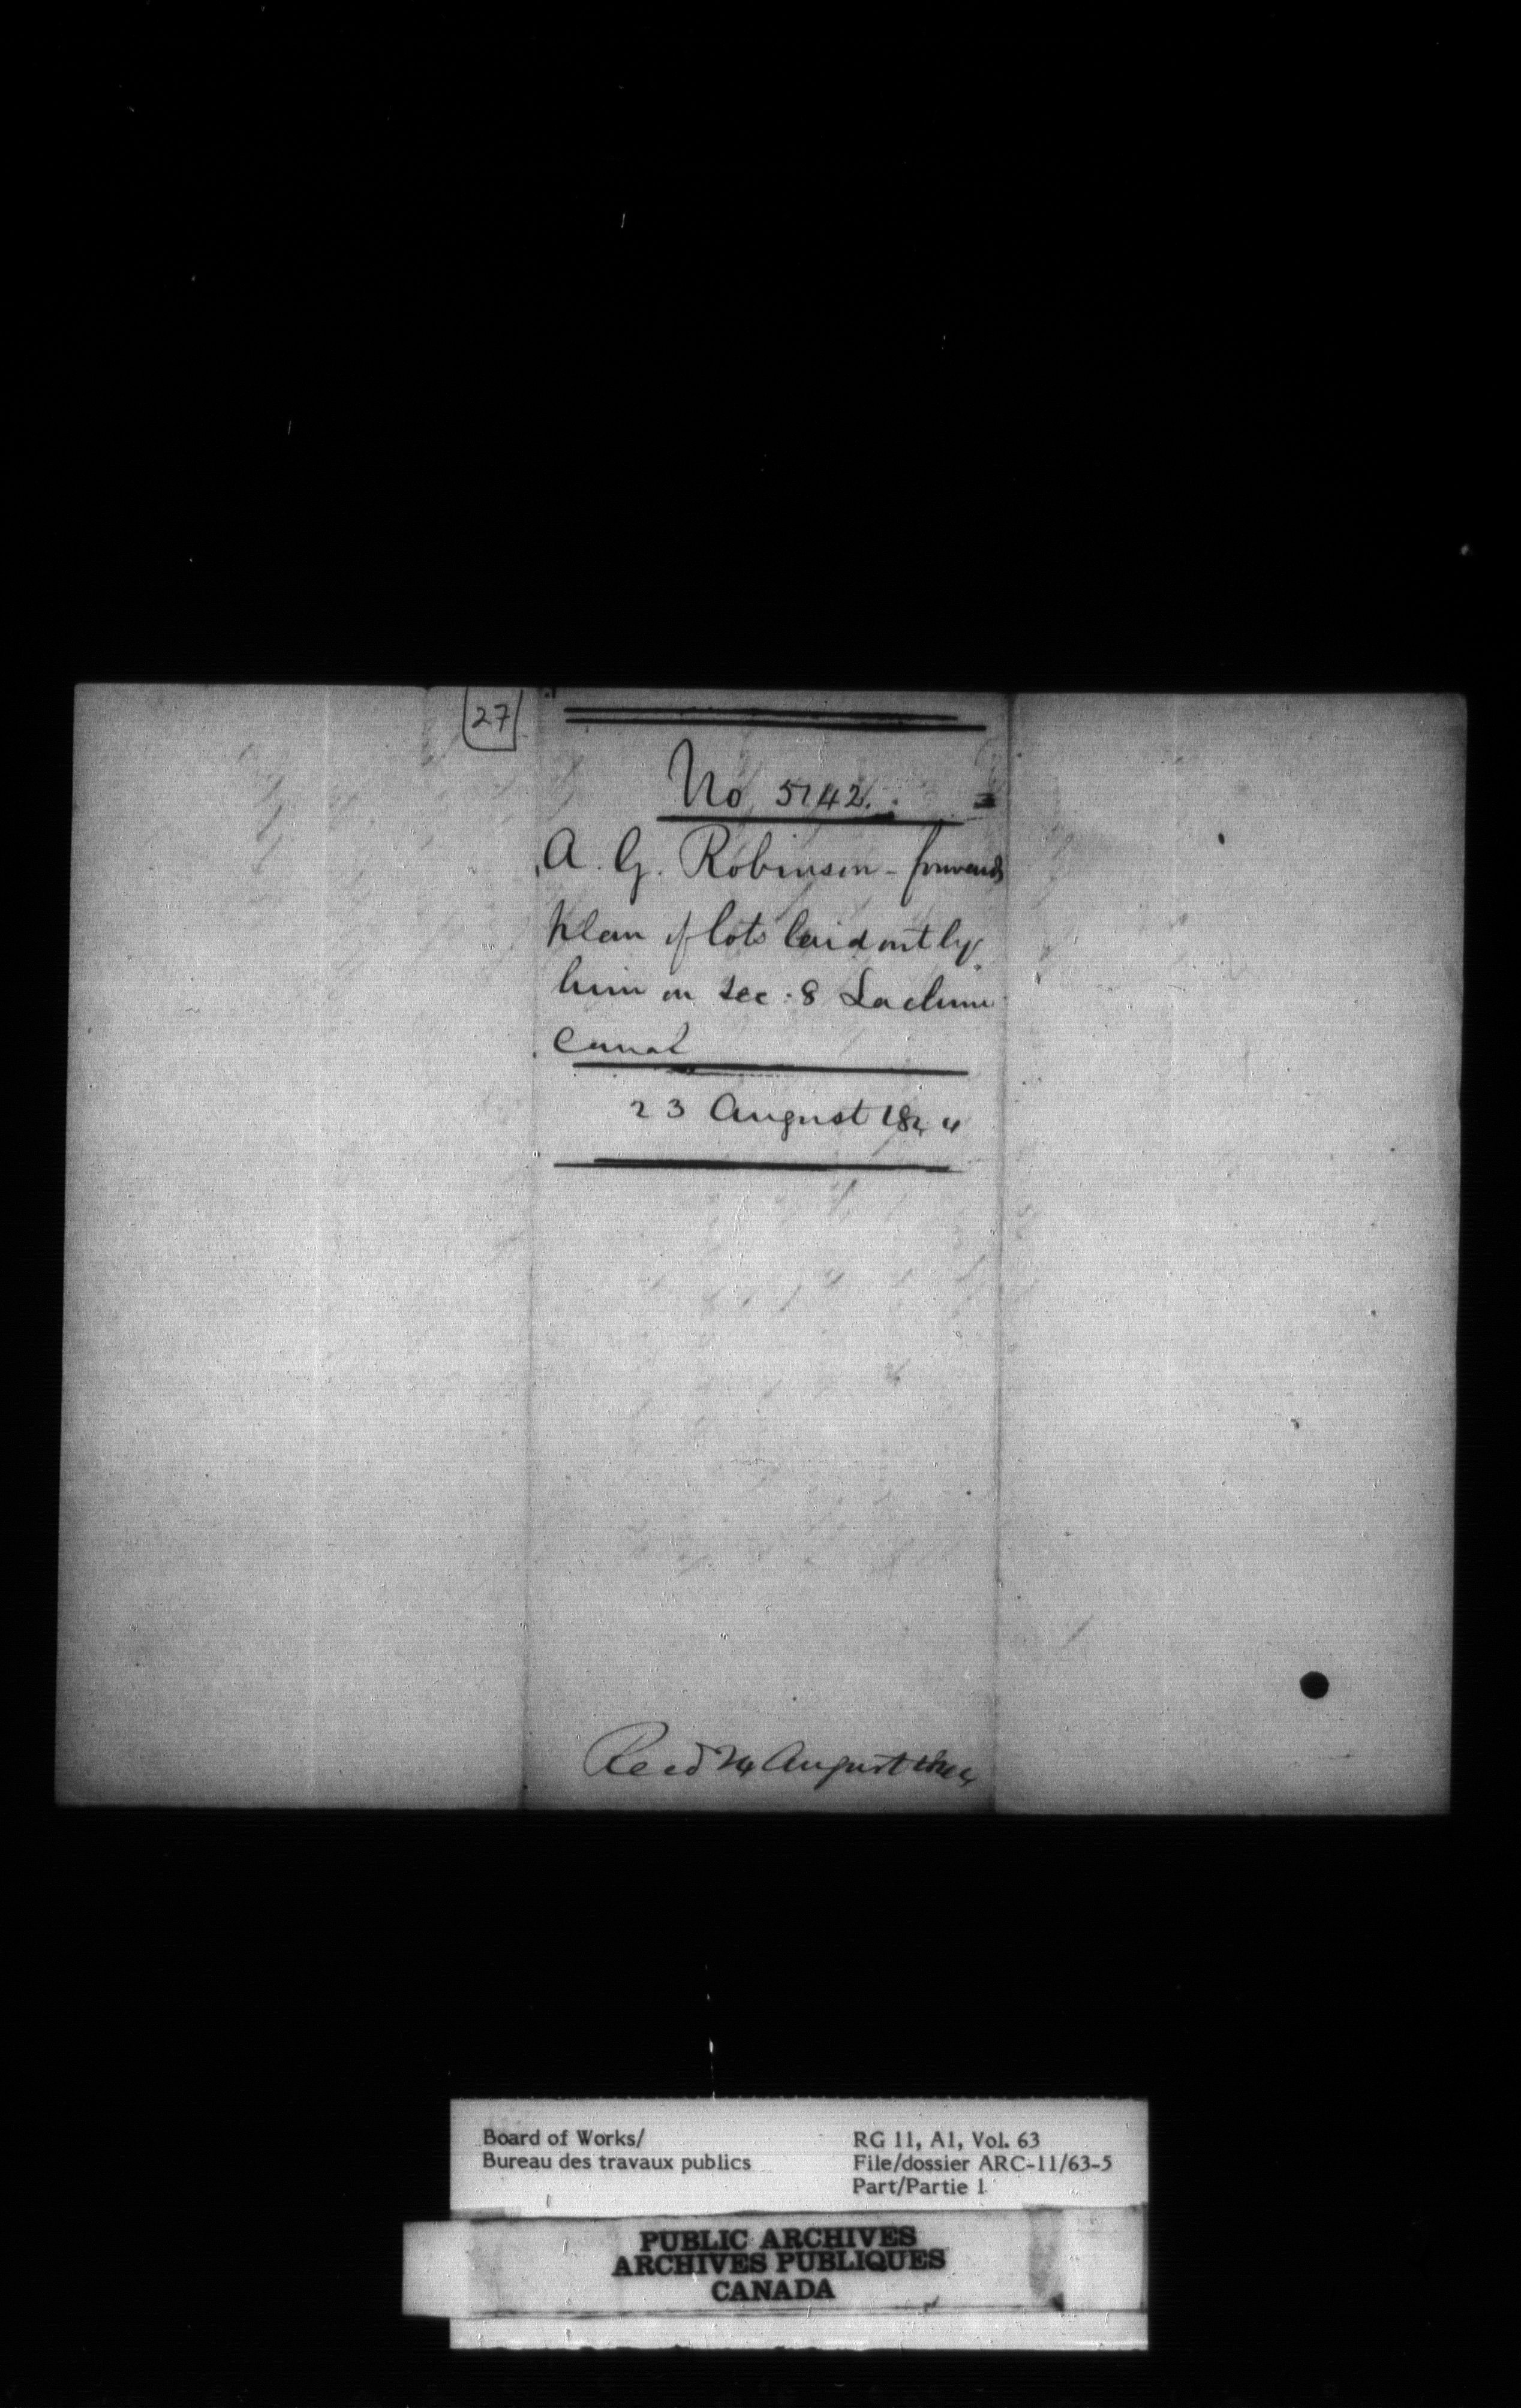 27
No 5142.
A. G. Robinson - forwards
plan of lots laid out by
him on Sec. 8 Lachine
Canal
23 August 1844
Recd 24 August 1844
Board of Works/
Bureau des travaux publics
RG 11, A1, Vol. 63
File/dossier ARC-11/63-5
Part/Partie 1
PUBLIC ARCHIVES
ARCHIVES PUBLIQUES
CANADA